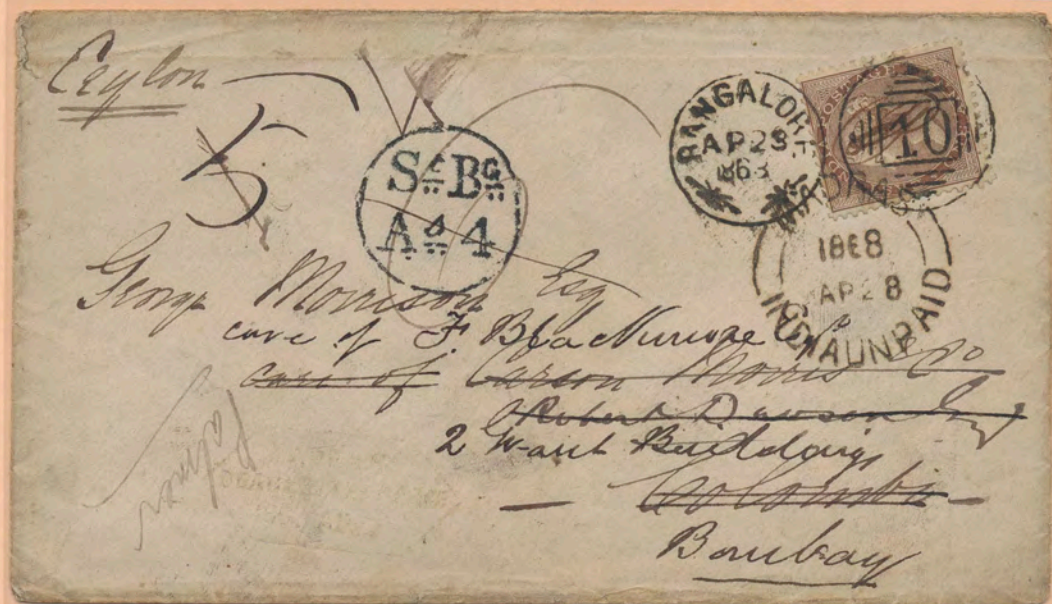 Ceylon
5
BANGALORE
AP 28
1868
10
MADRAS
1868
AP 28
INDIA UNPAID
Sg. Bg.
As. 4
George Morrison Esq
care of F Blackmore Co
care of Carson Morris Co
Robert Dawson Esq
2 Building
Colombo
Bombay